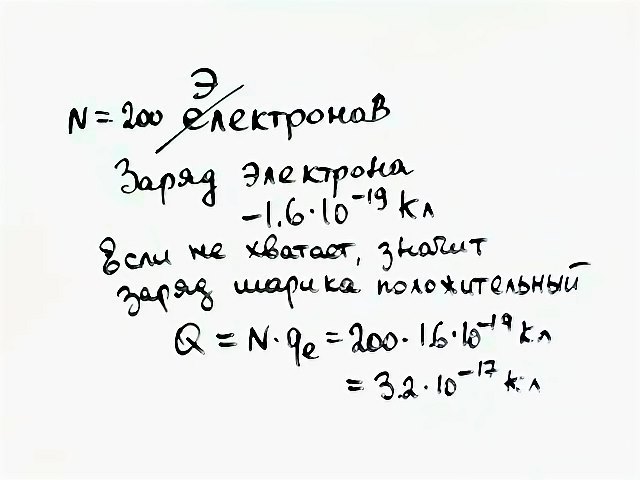 N = 200 электронов
Заряд электрона
-1.6·10⁻¹⁹ Кл
Если не хватает, значит
заряд шарика положительный
Q = N·qₑ = 200·1.6·10⁻¹⁹ Кл
= 3.2·10⁻¹⁷ Кл